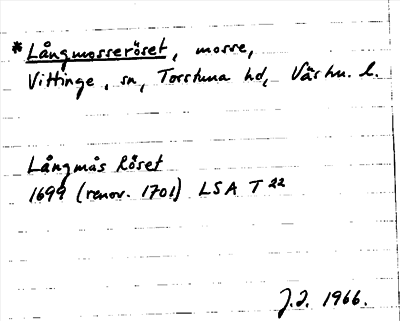 *Långmosseröset, mosse,
Vittinge, sn, Torstuna hd, Västm. l.
Långmås Röset
1699 (renov. 1701) LSA T 22
J.J. 1966.